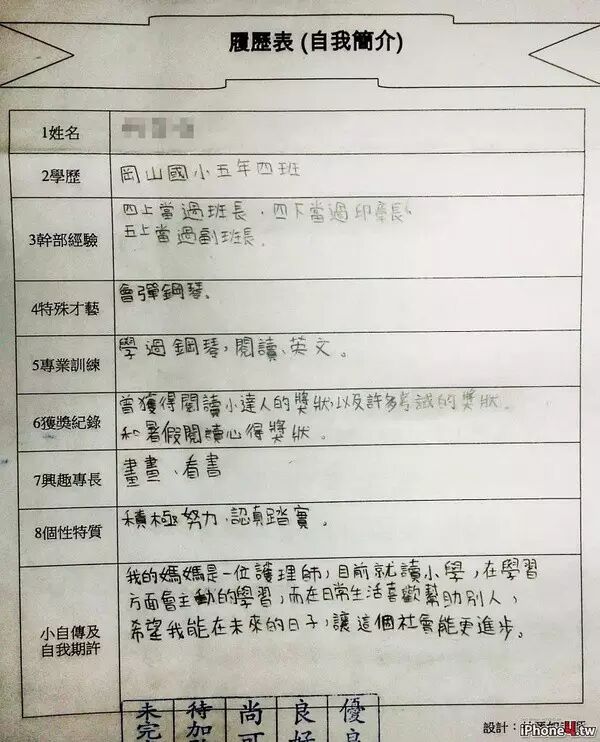 履歷表 (自我簡介)
1姓名
2學歷
岡山國小五年四班
3幹部經驗
四上當過班長、四下當過 長。
五上當過副班長。
4特殊才藝
會彈鋼琴。
5專業訓練
學過鋼琴,閱讀、英文。
6獲獎紀錄
曾獲得閱讀小達人的獎狀,以及許多考試的獎狀。
和暑假閱讀心得獎狀。
7興趣專長
畫畫、看書
8個性特質
積極努力、認真踏實。
小自傳及
自我期許
我的媽媽是一位護理師,目前就讀小學,在學習
方面會主動的學習,而在日常生活喜歡幫助別人,
希望我能在未來的日子,讓這個社會能更進步。
未完 待加 尚可 良好 優良
設計:
iPhone4.tw